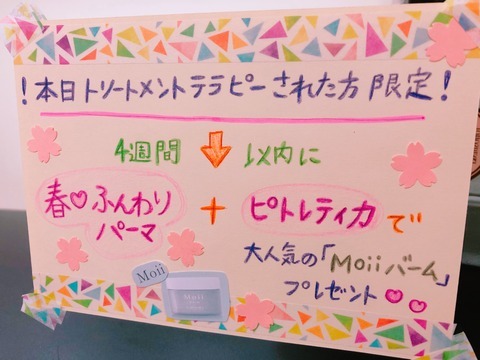 ！本日トリートメントテラピーされた方限定！
4週間 ↓ 以内に
春♡ふんわりパーマ + ピトレティカで
大人気の「Moiiバーム」
プレゼント♡♡
Moii
Moii